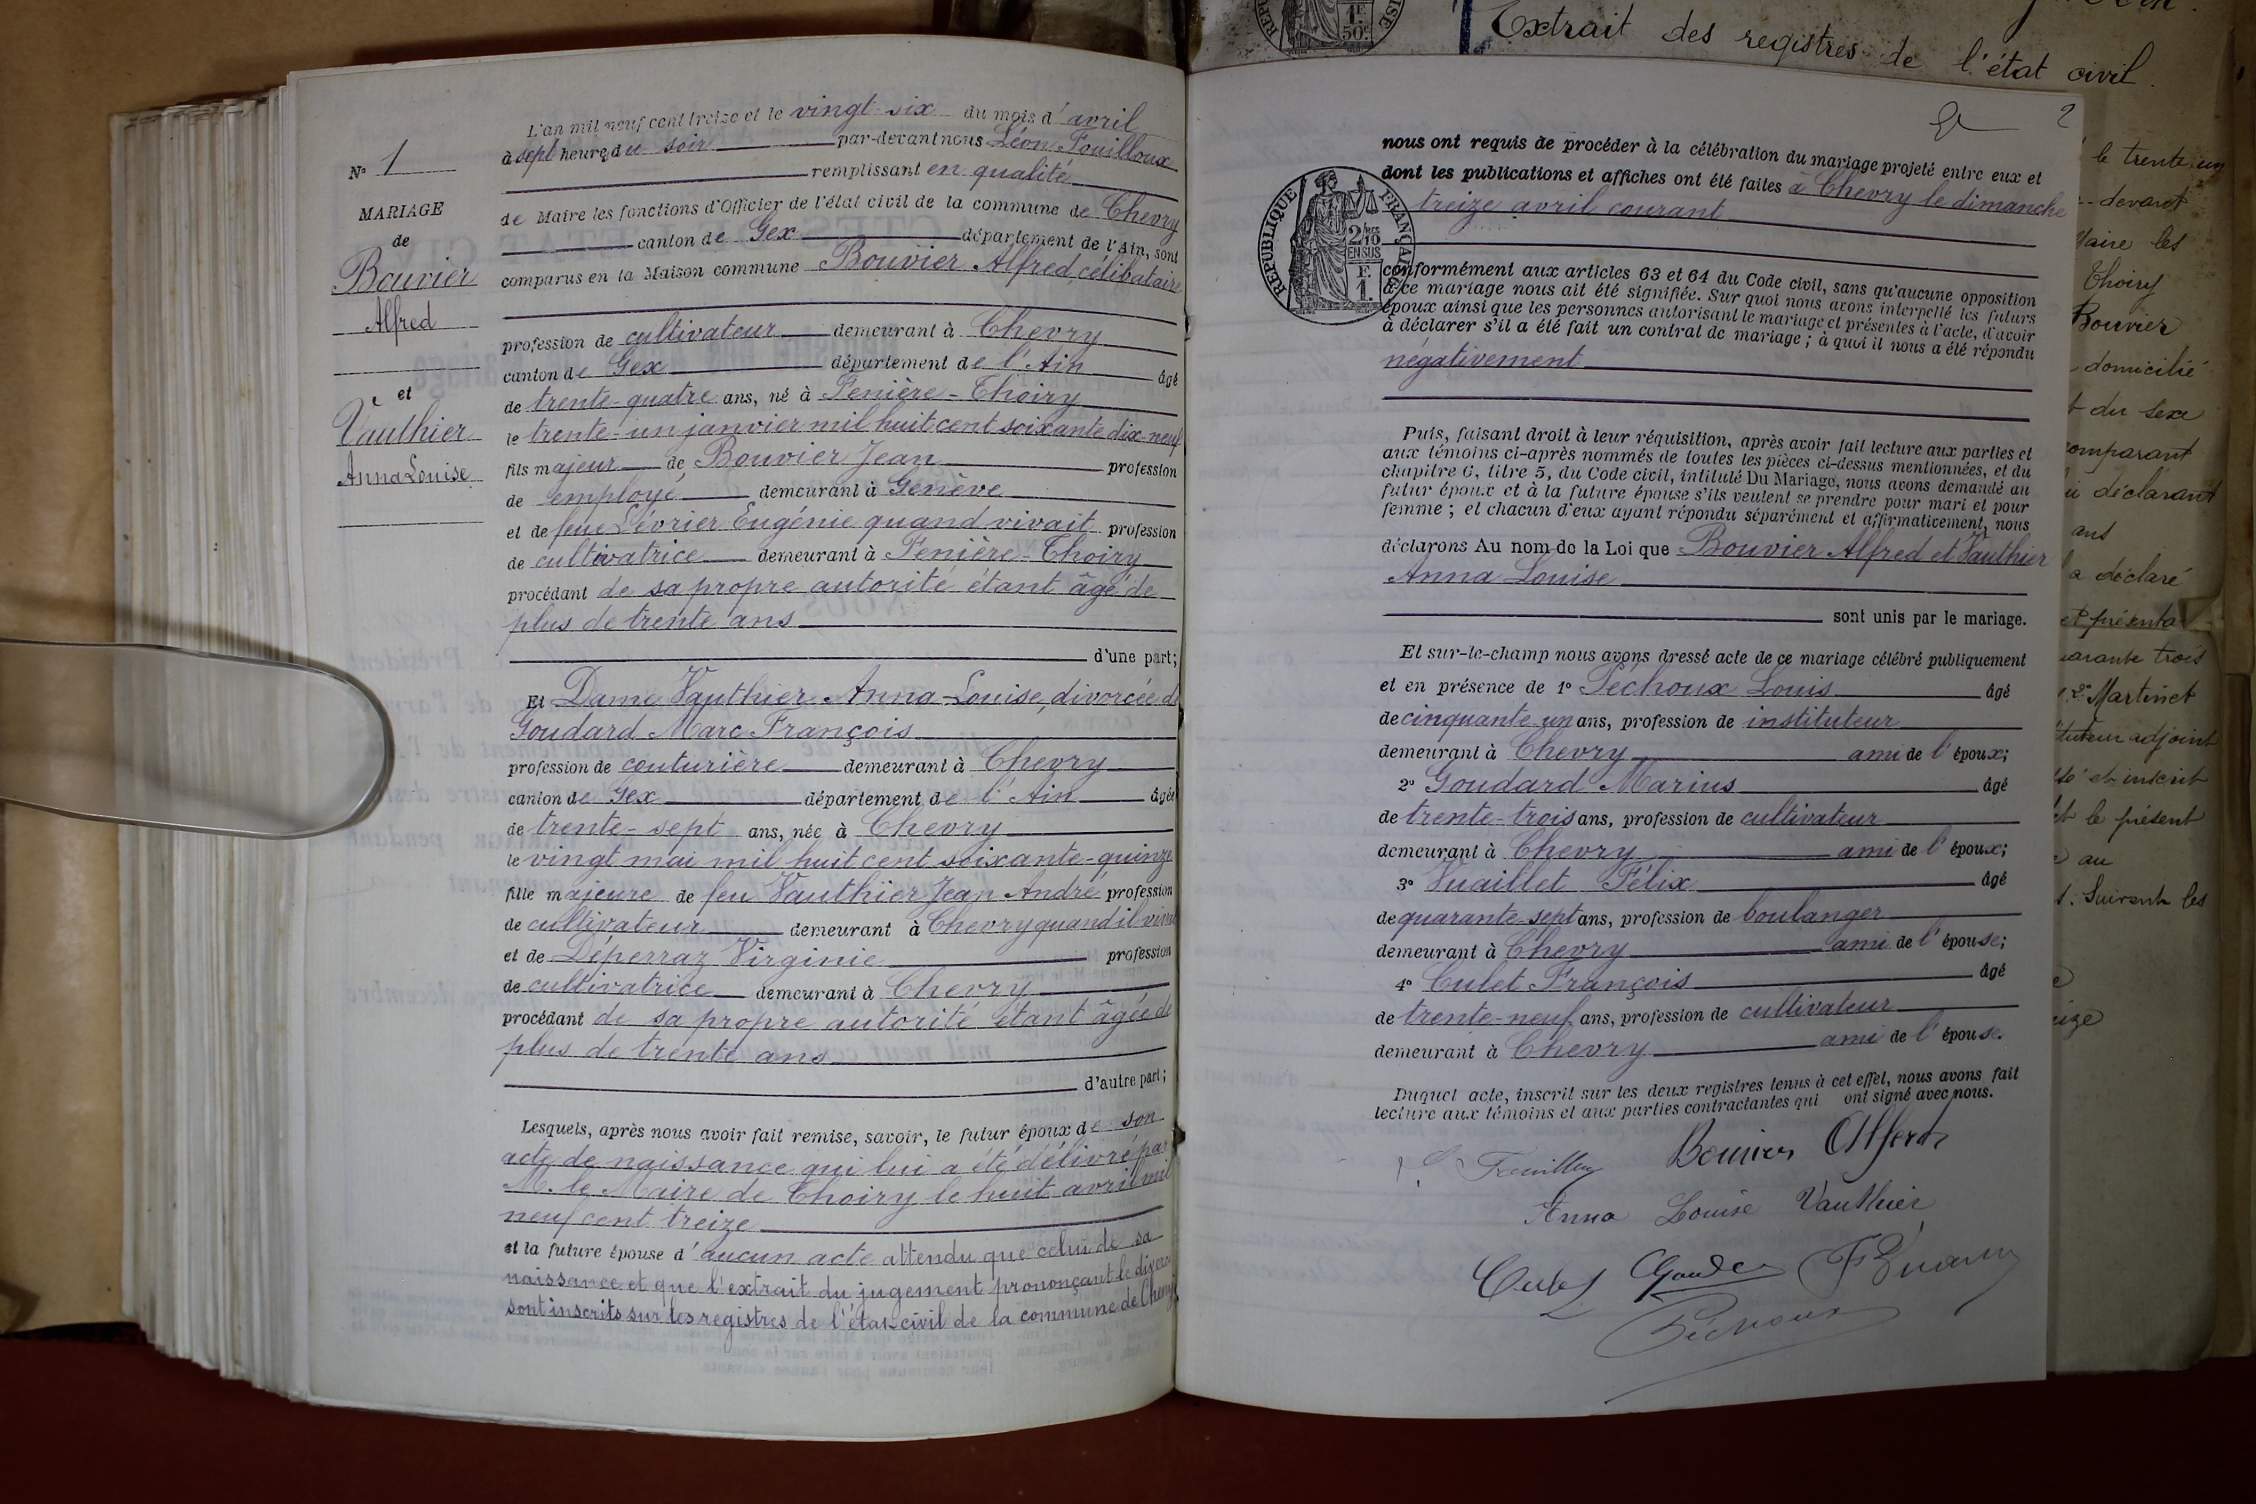 N° 1
MARIAGE
de
Bouvier
Alfred
et
Vauthier
Anna Louise
L'an mil neuf cent treize et le vingt-six du mois d'avril
à sept heures du soir par-devant nous Léon Fouilloux
remplissant en qualité
de Maire les fonctions d'Officier de l'état civil de la commune de Chevry
canton de Gex département de l'Ain, sont
comparus en la Maison commune Bouvier Alfred, célibataire
profession de cultivateur demeurant à Chevry
canton de Gex département de l'Ain âgé
de trente-quatre ans, né à Fenière-Thoiry
le trente-un janvier mil huit cent soixante dix-neuf
fils majeur de Bouvier Jean profession
de employé demeurant à Genève
et de feue Lévrier Eugénie quand vivait profession
de cultivatrice demeurant à Fenière-Thoiry
procédant de sa propre autorité étant âgé de
plus de trente ans
d'une part;
Et Dame Vauthier Anna-Louise, divorcée de
Goudard Marc François
profession de couturière demeurant à Chevry
canton de Gex département de l'Ain âgée
de trente-sept ans, née à Chevry
le vingt mai mil huit cent soixante-quinze
fille majeure de feu Vauthier Jean André profession
de cultivateur demeurant à Chevry quand il vivait
et de Déperraz Virginie profession
de cultivatrice demeurant à Chevry
procédant de sa propre autorité étant âgée de
plus de trente ans
d'autre part;
Lesquels, après nous avoir fait remise, savoir, le futur époux de son
acte de naissance qui lui a été délivré par
M. le Maire de Thoiry le huit avril mil
neuf cent treize
et la future épouse d'aucun acte attendu que celui de sa
naissance et que l'extrait du jugement prononçant le divorce
sont inscrits sur les registres de l'état-civil de la commune de Chevry
Extrait des registres de l'état civil
2
nous ont requis de procéder à la célébration du mariage projeté entre eux et
dont les publications et affiches ont été faites à Chevry le dimanche
treize avril courant
RÉPUBLIQUE FRANÇAISE
2/10
EN SUS
F.
1.
conformément aux articles 63 et 64 du Code civil, sans qu'aucune opposition
à ce mariage nous ait été signifiée. Sur quoi nous avons interpellé les futurs
époux ainsi que les personnes autorisant le mariage et présentes à l'acte, d'avoir
à déclarer s'il a été fait un contrat de mariage; à quoi il nous a été répondu
négativement
Puis, faisant droit à leur réquisition, après avoir fait lecture aux parties et
aux témoins ci-après nommés de toutes les pièces ci-dessus mentionnées, et du
chapitre 6, titre 5, du Code civil, intitulé Du Mariage, nous avons demandé au
futur époux et à la future épouse s'ils veulent se prendre pour mari et pour
femme; et chacun d'eux ayant répondu séparément et affirmativement, nous
déclarons Au nom de la Loi que Bouvier Alfred et Vauthier
Anna Louise
sont unis par le mariage.
Et sur-le-champ nous avons dressé acte de ce mariage célébré publiquement
et en présence de 1° Péchoux Louis âgé
de cinquante un ans, profession de instituteur
demeurant à Chevry ami de l'époux;
2° Goudard Marius âgé
de trente-trois ans, profession de cultivateur
demeurant à Chevry ami de l'époux;
3° Vuaillet Félix âgé
de quarante-sept ans, profession de boulanger
demeurant à Chevry ami de l'épouse;
4° Culet François âgé
de trente-neuf ans, profession de cultivateur
demeurant à Chevry ami de l'épouse.
Duquel acte, inscrit sur les deux registres tenus à cet effet, nous avons fait
lecture aux témoins et aux parties contractantes qui ont signé avec nous.
Bouvier Alfred
Anna Louise Vauthier
Culet
Péchoux
le trente un
devant
Maire les
Thoiry
Bouvier
domicilié
du sexe
comparant
déclarant
ans
a déclaré
et présenta
quarante trois
2° Martinet
adjoint
et inscrit
le présent
au
Suivent les